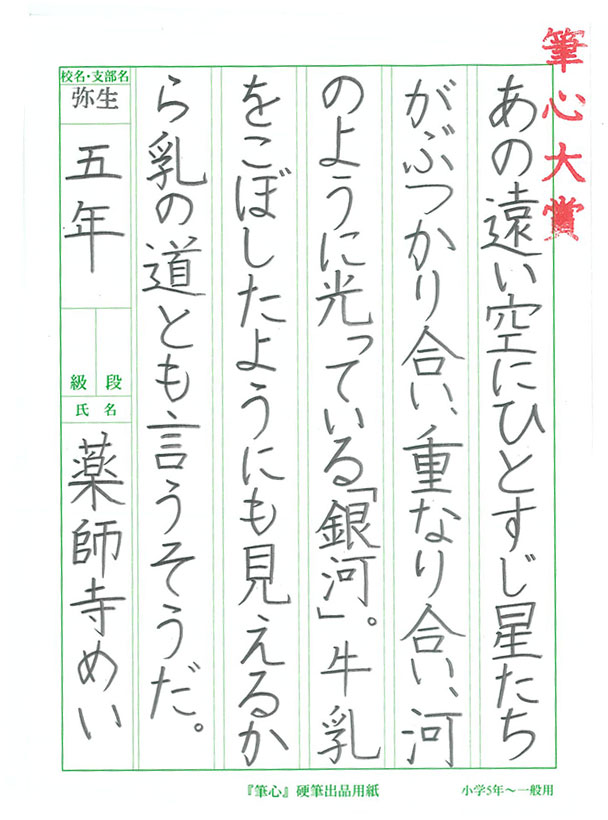 筆心大賞
あの遠い空にひとすじ星たち
がぶつかり合い、重なり合い、河
のように光っている「銀河」。牛乳
をこぼしたようにも見えるか
ら乳の道とも言うそうだ。
校名・支部名
弥生
五年
級 段
氏名
薬師寺めい
『筆心』硬筆出品用紙
小学5年～一般用